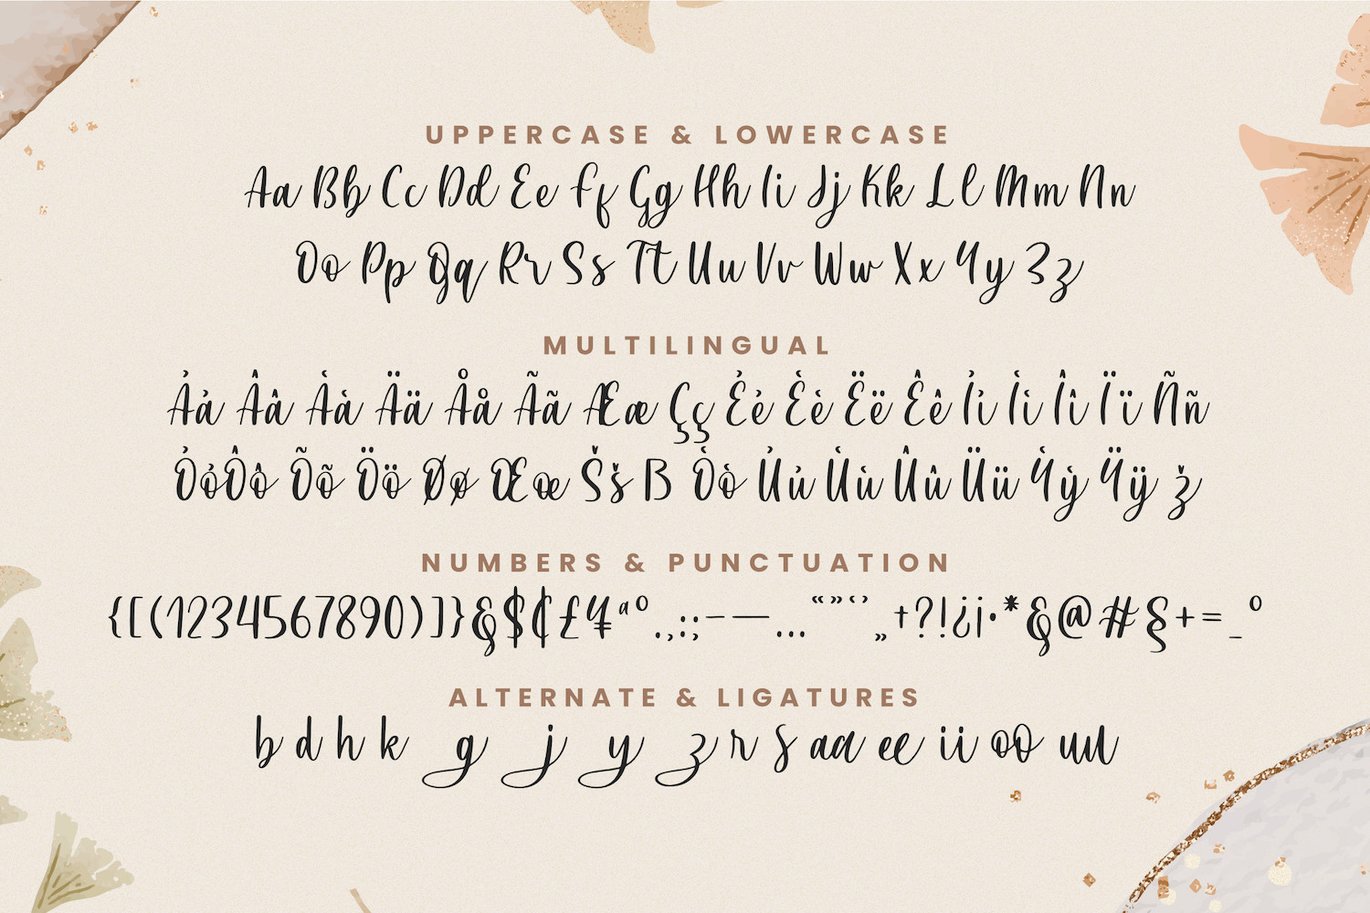 UPPERCASE & LOWERCASE
Aa Bb Cc Dd Ee Ff Gg Hh Ii Jj Kk Ll Mm Nn
Oo Pp Qq Rr Ss Tt Uu Vv Ww Xx Yy Zz
MULTILINGUAL
Ảả Ââ Àà Ää Åå Ãã Ææ Çç Ẻẻ Èè Ëë Êê Ỉỉ Ìì Îî Ïï Ññ
Ỏỏ Ôô Õõ Öö Øø Œœ Šš ß Òò Ủủ Ùù Ûû Üü Ỳỳ Ÿÿ ž
NUMBERS & PUNCTUATION
{[(1234567890)]}&$¢£¥ªº.,:;–—…“”‘’„†?!¿¡•*&@#§+=_º
ALTERNATE & LIGATURES
b d h k g j y z r s aa ee ii oo uu